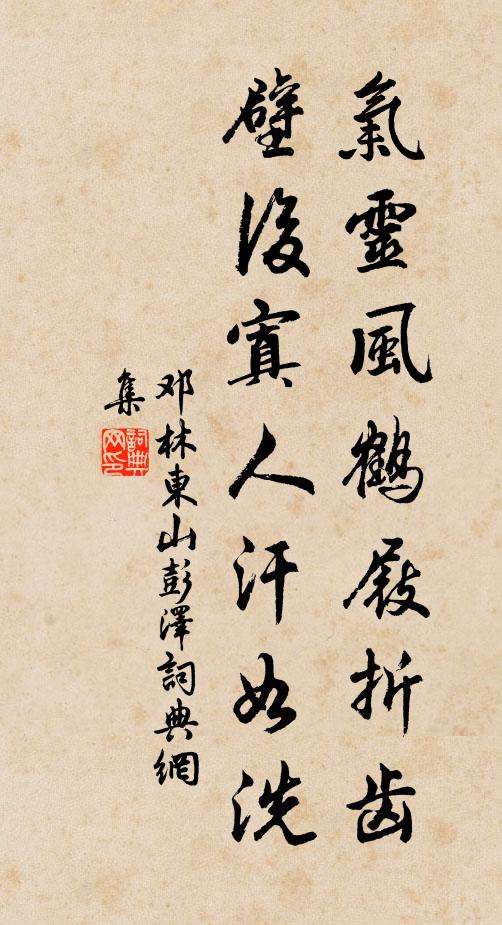 氣靈風鶴屐折齒
壁後寘人汗如洗
邓林東山彭澤詞典網
集
詞典网印